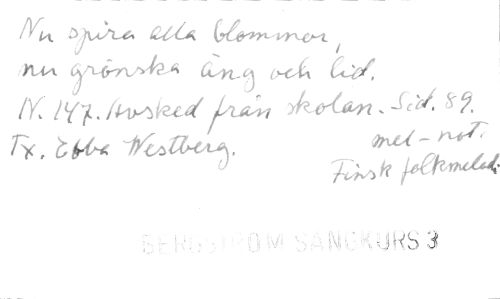 Nu spira alla blommor,
nu grönska äng och lid.
N. 147. Avsked från skolan. Sid. 89.
Tx. Ebba Westberg. mel-not.
Finsk folkmelodi
BERGSTRÖM SÅNGKURS 3